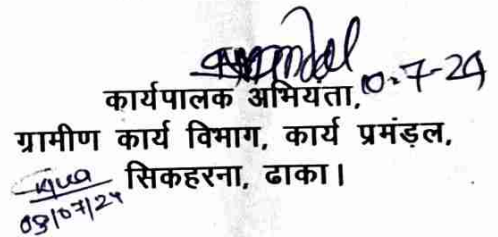 10-7-24
कार्यपालक अभियंता,
ग्रामीण कार्य विभाग, कार्य प्रमंडल,
सिकहरना, ढाका।
09/07/24